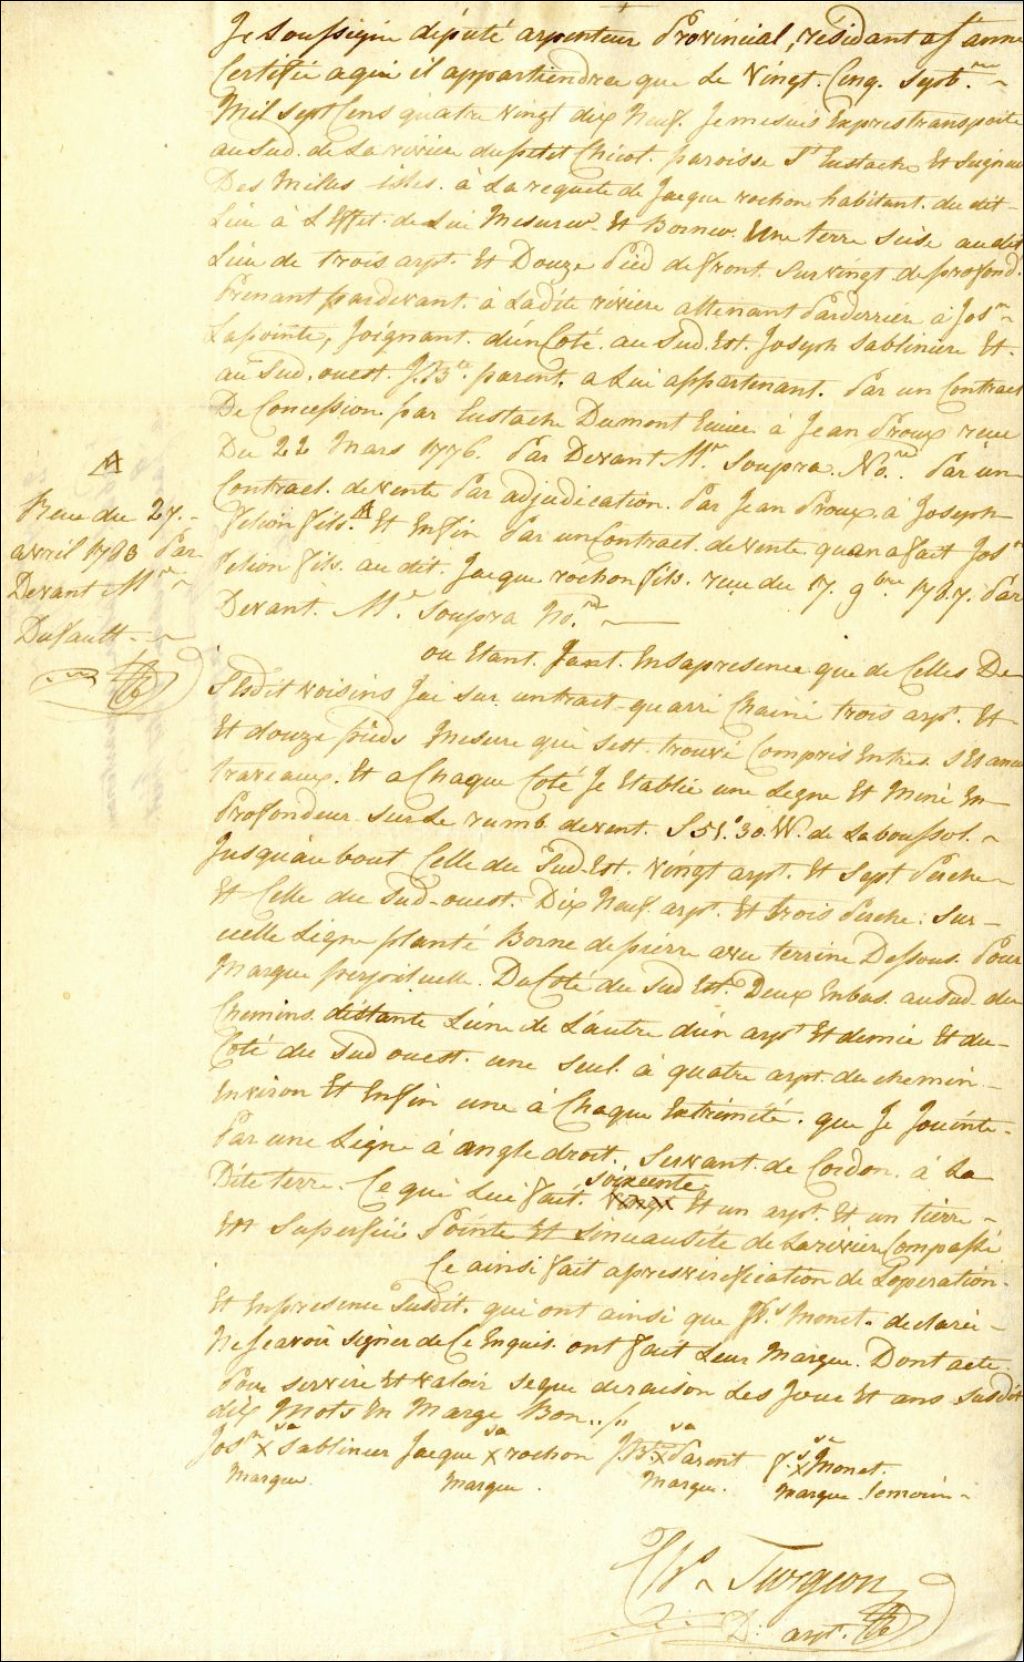 Je Soussigné député arpenteur Provincial, résidant a St anne
Certifie a qui il appartiendra que Le Vingt. Cinq. Septbre ~
Mil Sept Cens quatre vingt dix Neuf. Je me suis Expres transporté
au Sud. de La riviere du petit Chicot. paroisse St Eustache Et Seigneu
Des Milles isles. à La requete de Jacque rochon habitant. du dit
Lieu à L'Effet. de Lui Mesurer. Et Borner. Une terre Size au dit
Lieu de trois arpt. Et Douze Pied de front. Sur vingt de profond.
Prenant par devant. à Ladite riviere attenant Parderrier à Josph
Lapointe, Joignant. d'un Coté. au Sud. Est. Joseph Sablineur Et.
au Sud. ouest. J. Bte. parent. a Lui appartenant. Par un Contract
De Concession. par Eustache Dumont Ecuier à Jean Proux reçu
Du 22 Mars 1776. Par Devant Mr. Soupra. Nore. Par un
Contract. de vente Par adjudication. Par Jean Proux. à Joseph
Felion fils. A Et Enfin Par un Contract. de vente qu'en a fait Josph
Felion fils. au dit. Jacque rochon fils. reçu du 17. 9bre. 1787. Par
Devant. Mr. Soupra No.re
A
Reçu du 27.
avril 1780 Par
Devant Mr
Dufault
ou Etant. Tant. En sa presence que de Celles De
S'Esdit voisins J'ai Sur un trait quarré Chainé trois arpt. Et
Et douze pieds Mesure qui s'est. trouvé Compris Entres S'Es anc
travaux. Et a Chaque Coté Je Etablie une Ligne Et Mené En
Profondeur Sur Le rumb de vent. S 51.° 30. W. de La boussol. ~
Jusqu'au bout Celle du Sud-Est. vingt arpt. Et Sept Perche
Et Celle du Sud-ouest. Dix Neuf. arpt. Et trois Perche. Sur
uelle Ligne planté Borne de pierre avec terrine Dessous. Pour
Marque perpoituelle. Du Coté du Sud Est. Deux En bas. au Sud. du
Chemins. distante L'une de L'autre d'un arpt Et demie Et du
Coté du Sud ouest. une Seul. à quatre arpt. du chemin
Environ Et Enfin une à Chaque Extrimité. que Je Jouinte
Par une Ligne à angle droit. Servant. de Cordon. à La
Soixcente
Dite terre. Ce qui Lui fait. vingt Et un arpt. Et un tierre ~
En Superficie Pointe Et Sinuausité de La riviere Compassé
Ce ainsi fait apres virification de L'operation
Et En presence Susdit. qui ont ainsi que Monet. declarér
Ne Scavoir signer de Ce Enquis. ont fait Leur Marque. Dont acte.
Pour servire Et valoir seque de raison Les Jour Et ans Susdit
dix Mots En Marge Bon
sa sa sa sa
Josph X Sablineur Jacque X rochon J. Bte X Parent f. X Monet.
Marque Marque. Marque. Marque. temoin ~
Turgeon
D: arpt.